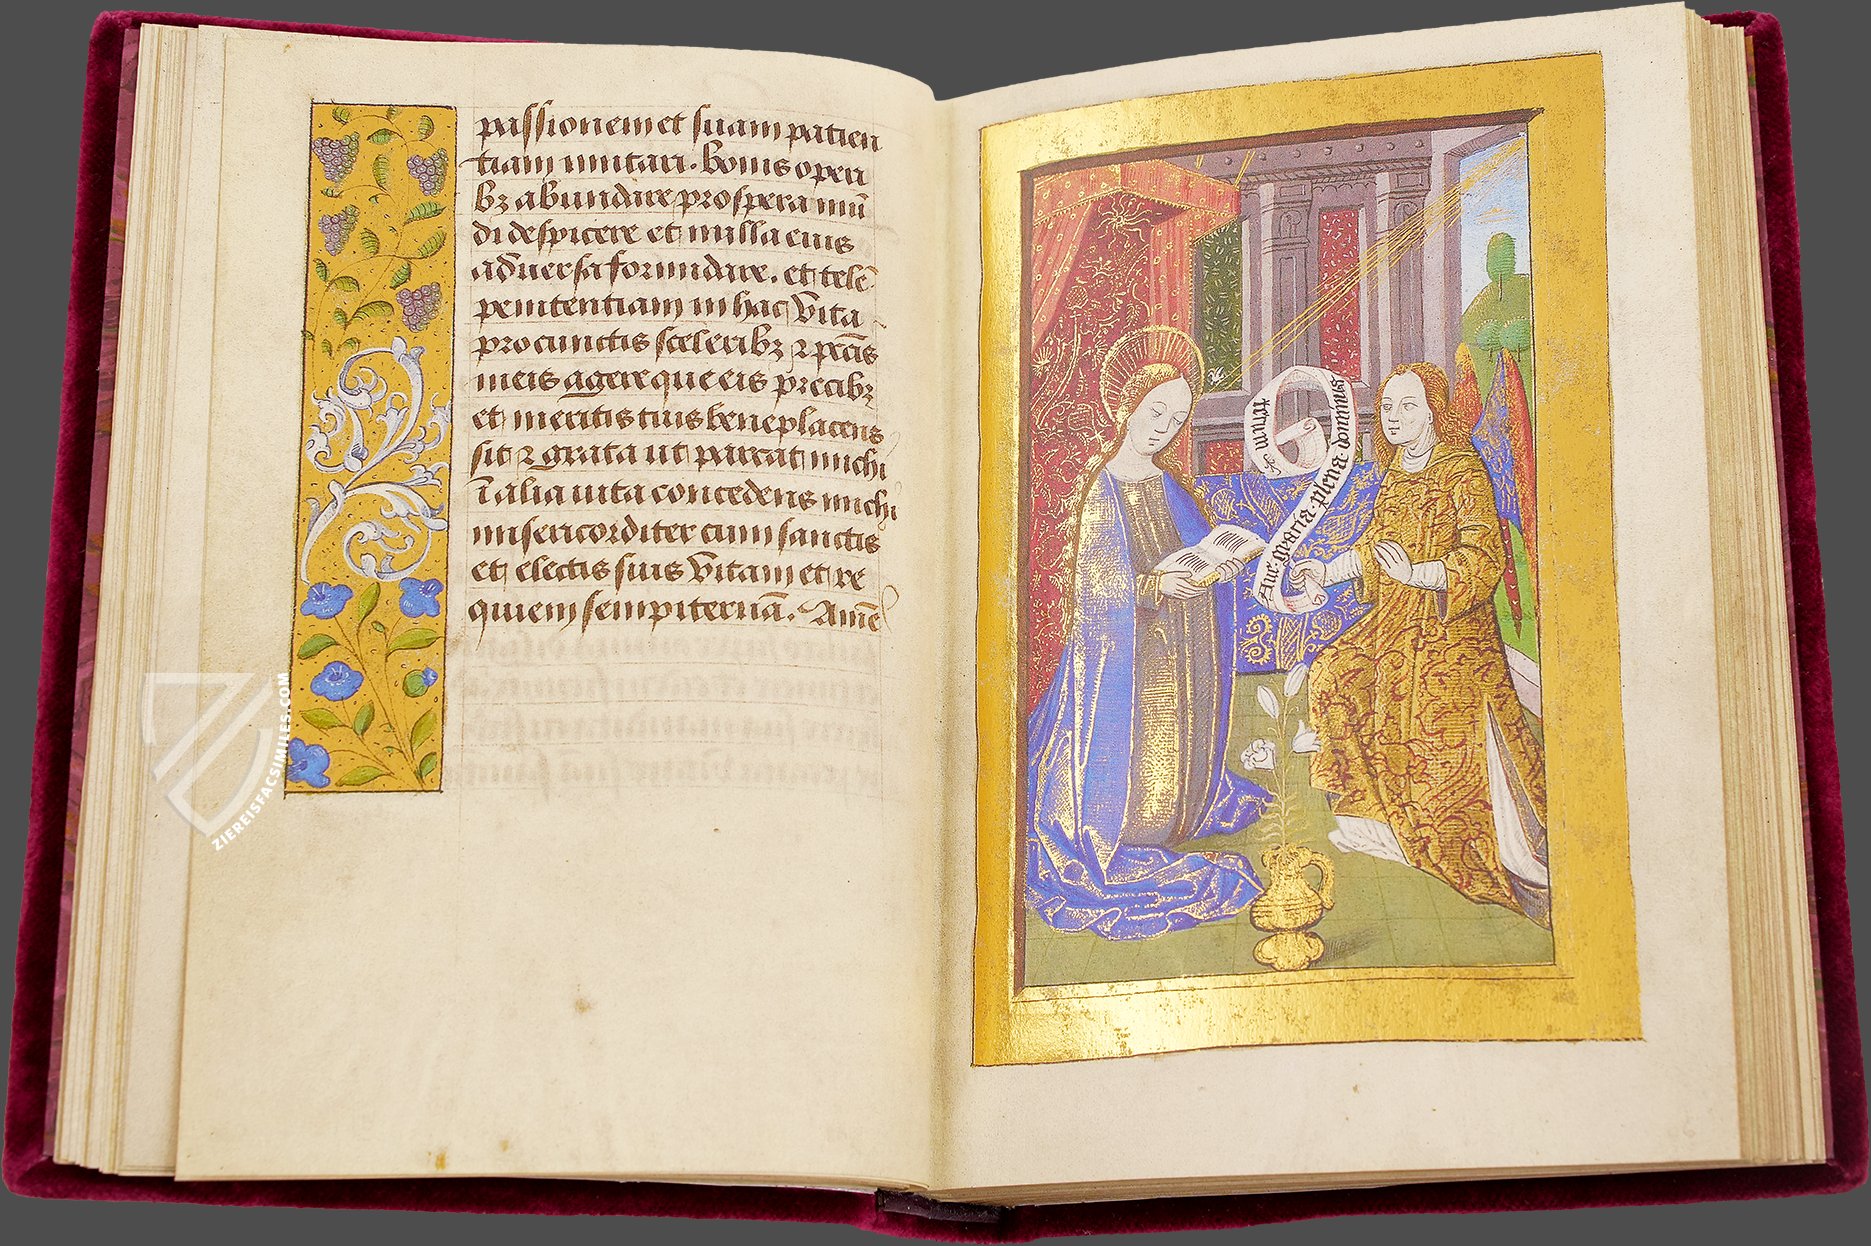 passionem et suam patien
tiam imitari. bonis operi
bz abundare prospera mū
di despicere et nulla eius
aduersa formidare. et talē
penitentiam in hac vita
pro cunctis sceleribz ⁊ pctīs
meis agere que eis precibz
et meritis tuis beneplacens
sit ⁊ grata ut parcat michi
ī alia uita concedens michi
misericorditer cum sanctis
et electis suis vitam et re
quiem sempiternā. Amē
Aue. gracia. plena. dominus
tecum
ZIEREISFACSIMILES.COM